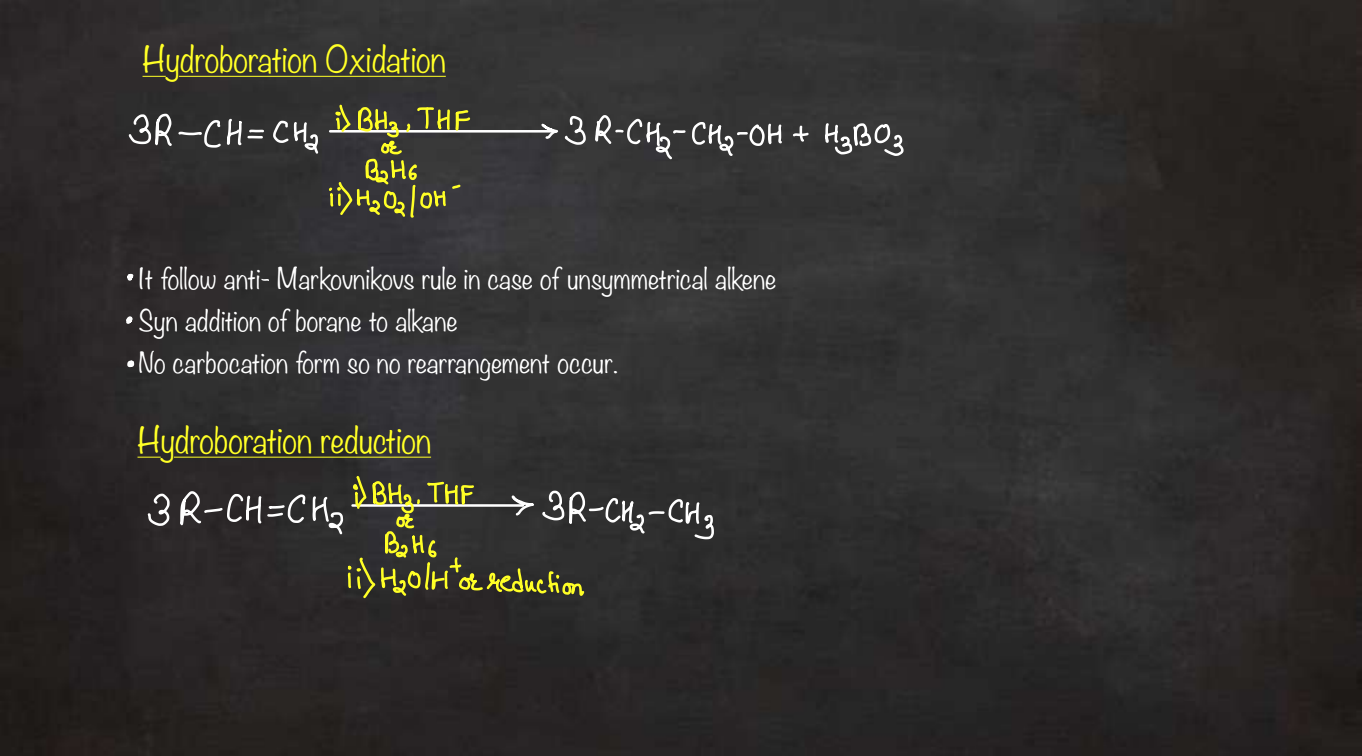 Hydroboration Oxidation
3R-CH=CH₂ i) BH₃, THF or B₂H₆ ii) H₂O₂/OH⁻ → 3 R-CH₂-CH₂-OH + H₃BO₃
• It follow anti- Markovnikovs rule in case of unsymmetrical alkene
• Syn addition of borane to alkane
• No carbocation form so no rearrangement occur.
Hydroboration reduction
3 R-CH=CH₂ i) BH₃, THF or B₂H₆ ii) H₂O/H⁺ or reduction → 3R-CH₂-CH₃